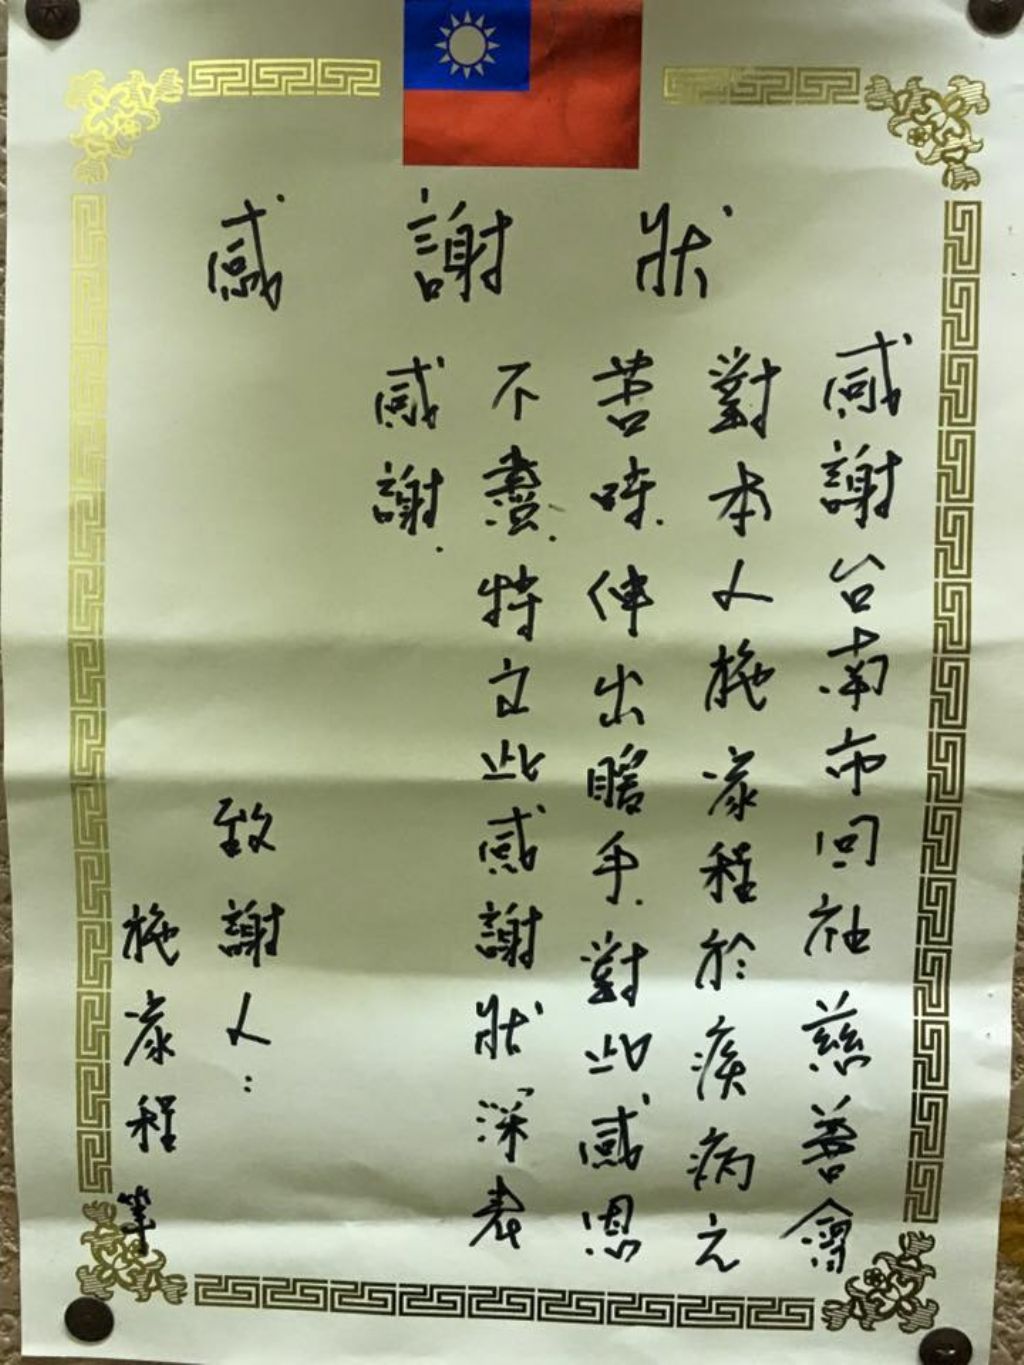 感謝狀
感謝台南市回祂慈善會
對本人施 程於疾病
苦時.伸出暖手.對此感恩
不盡.特立此感謝狀深表
感謝.
致謝人:
施 程等